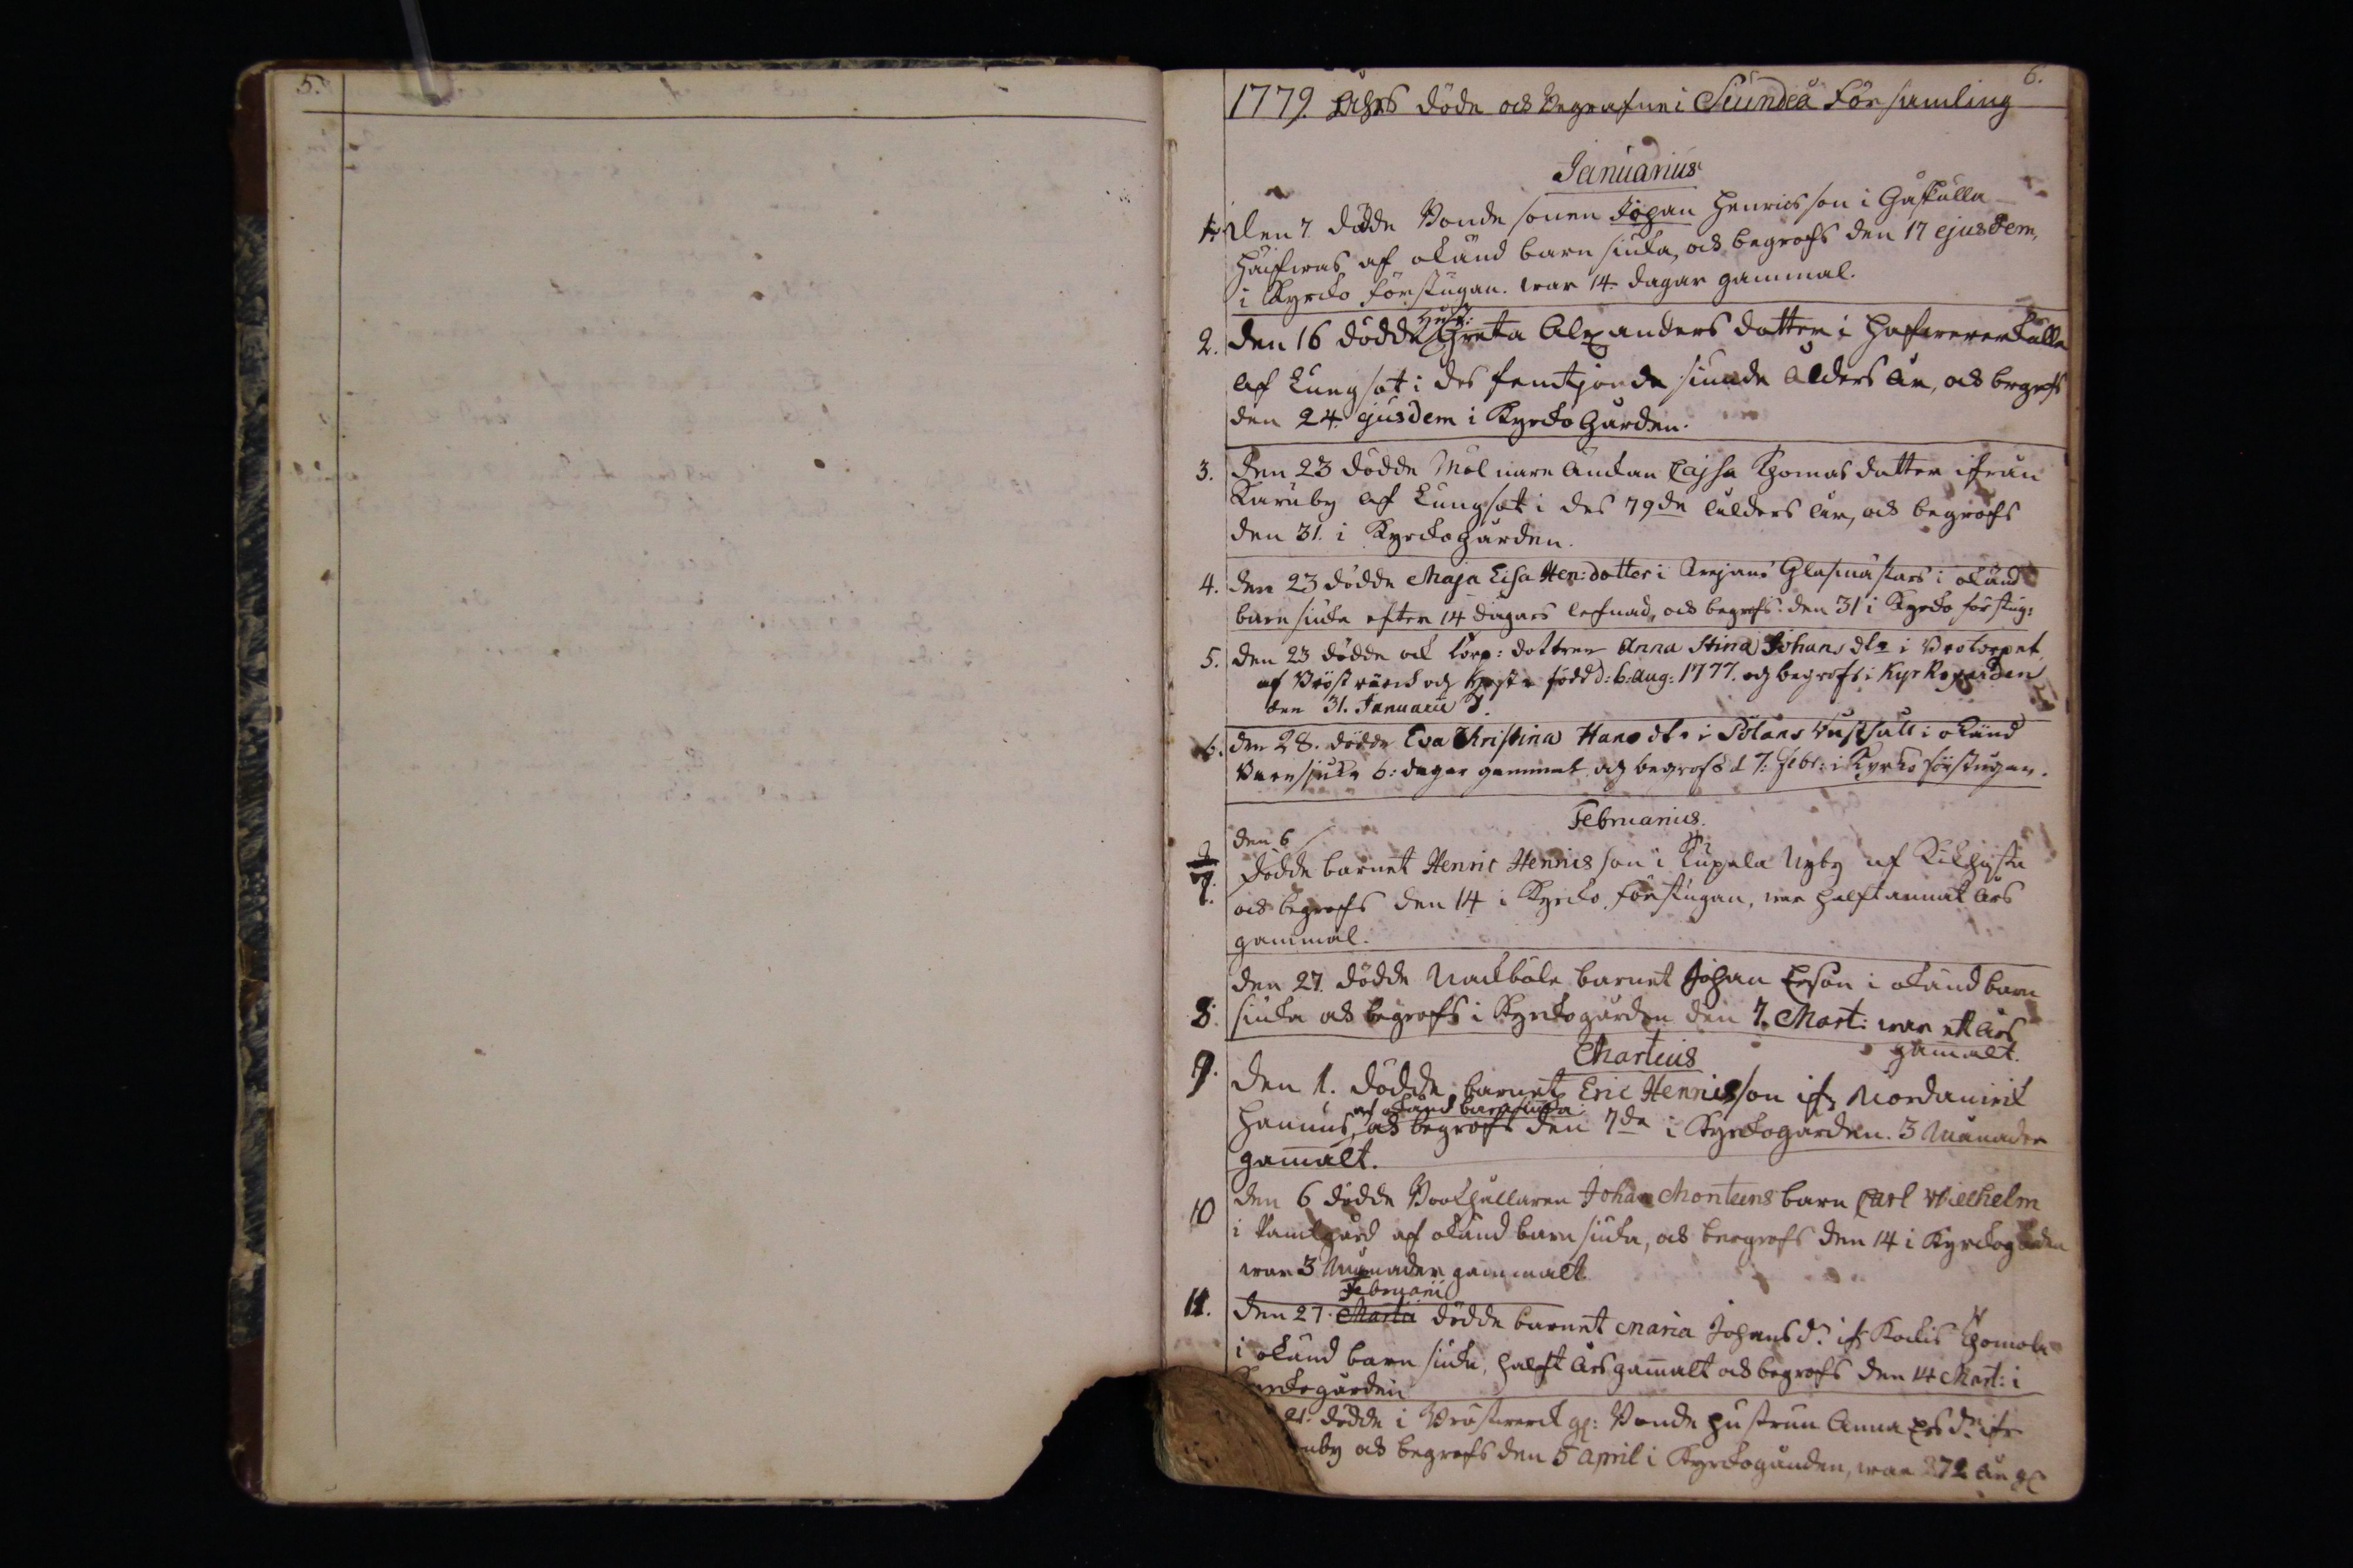 5.
6.
1779. åhrs döde och begrafne i Siundeå Församling
Januarius
1. Den 7. dödde Bonde sonen Johan Henricsson i Gåskulla
af okänd barn siuka, och begrofs den 17 ejusdem,
i Kyrcko förstugan. war 14 dagar gammal.
2. Den 16 dödde Hust: Greta Alexanders dotter i
af Lungsot i des femtjonde siunde Alders år, och begrofs
den 24 ejusdem i Kyrcko Gården.
3. Den 23 dödde Mölnare Änckan Cajsa Thomas dotter ifrån
Karuby af Lungsot i des 79de Ålders år, och begrofs
den 31. i Kyrckogården.
4. den 23 dödde Maja Lisa Hen: dotter i Glasmästars i okänd
barn siuka efter 14 dagars lefnad, och begrofs den 31 i Kyrcko förstug:
5. den 23 dödde och Corp: dottren Anna Stina Johans dtr i
af Bröstwärck och Hosta född d: 6: Aug: 1777. och begrofs i Kyrkogården
den 31. Januarii
6. den 28. dödde Eva Christina Hans dtr i i okänd
Barnsjuka 6: dagar gammal och begrofs d 7: Febr: i Kyrko förstugan.
Februarius.
den 6
7. dödde barnet Henric Henricsson i Nyby af Kikhosta
och begrofs den 14 i Kyrcko förstugan, war halftannat års
gammal.
den 27. dödde Nackböle barnet Johan Ersson i okänd barn
8. siuka och begrofs i Kyrckogården den 7. Mart: war ett års
gamalt.
Martius
9. den 1. dödde barnet Eric Henricsson ifr
af okänd barnsiuka
och begrofs den 7de i Kyrckogården. 3 Månader
gamalt.
10 den 6 dödde Bookhållaren Johan Monteens barn Carl Wilhelm
i af okänd barn siuka, och begrofs den 14 i Kyrckogården
war 3 Månader gammalt.
Februarii
11. den 27. Martii dödde barnet Maria Johans d: ifr
i okänd barn siuka, halft års gamalt och begrofs den 14 Mart: i
Kyrckogården
21. dödde i Bröstwerck gl: Bonde hustrun Anna Ers dr ifr
och begrofs den 5 April i Kyrckogården, war 72 år gl